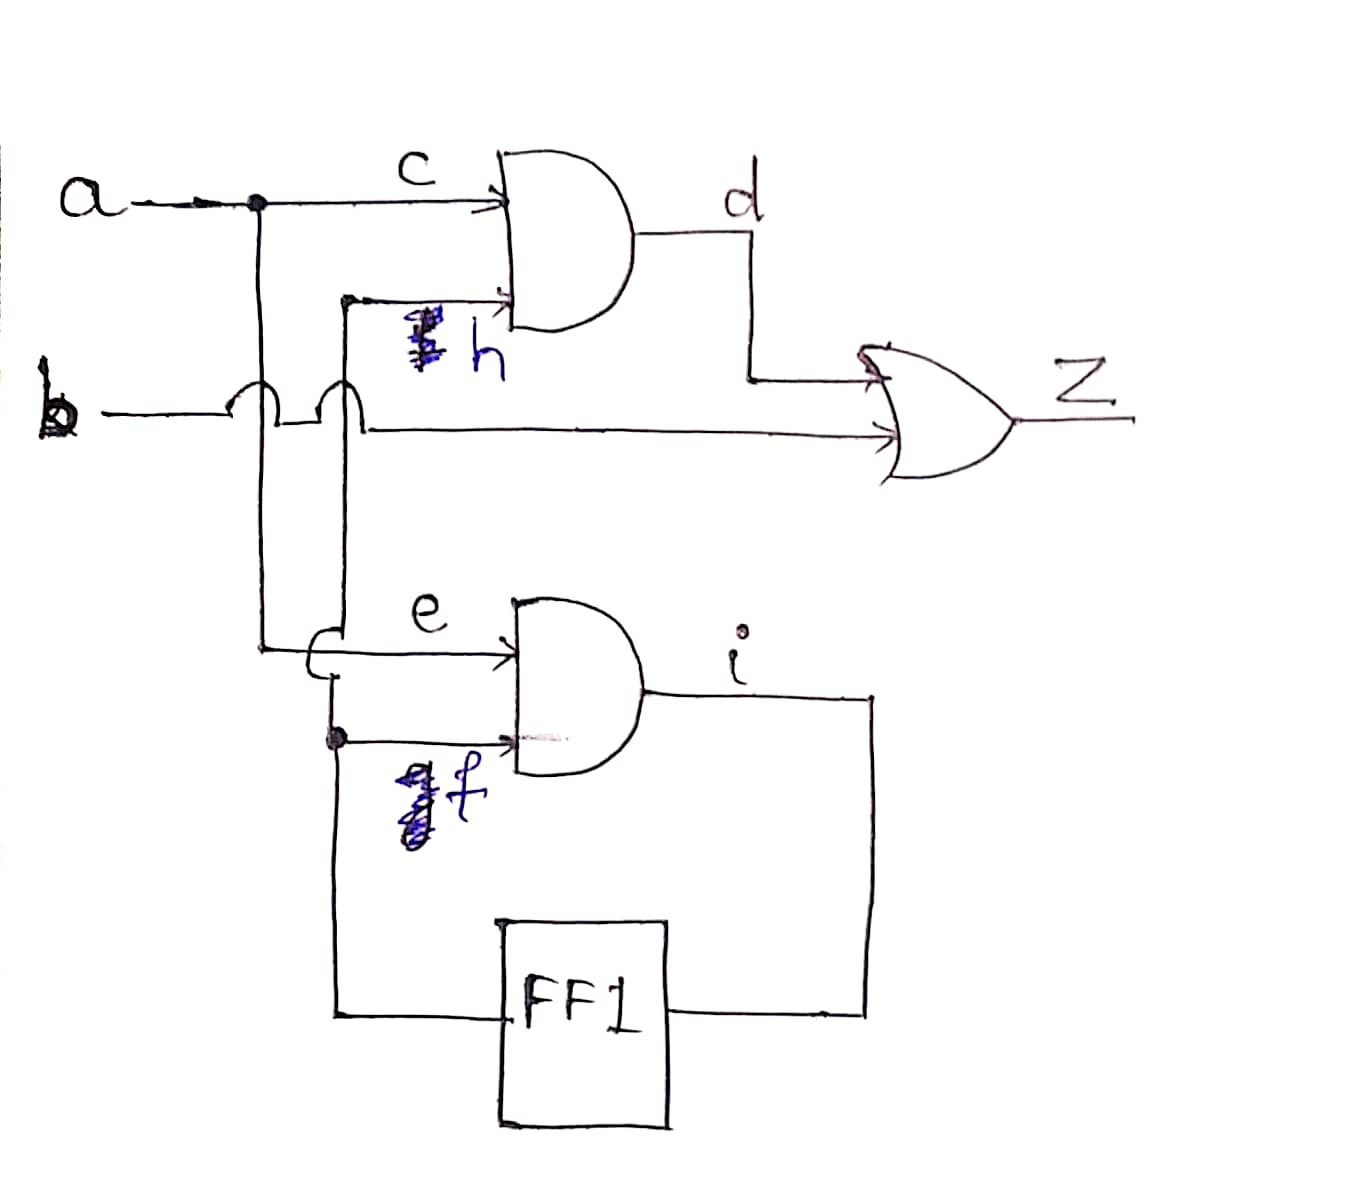 a
c
d
h
b
Z
e
i
f
FF1